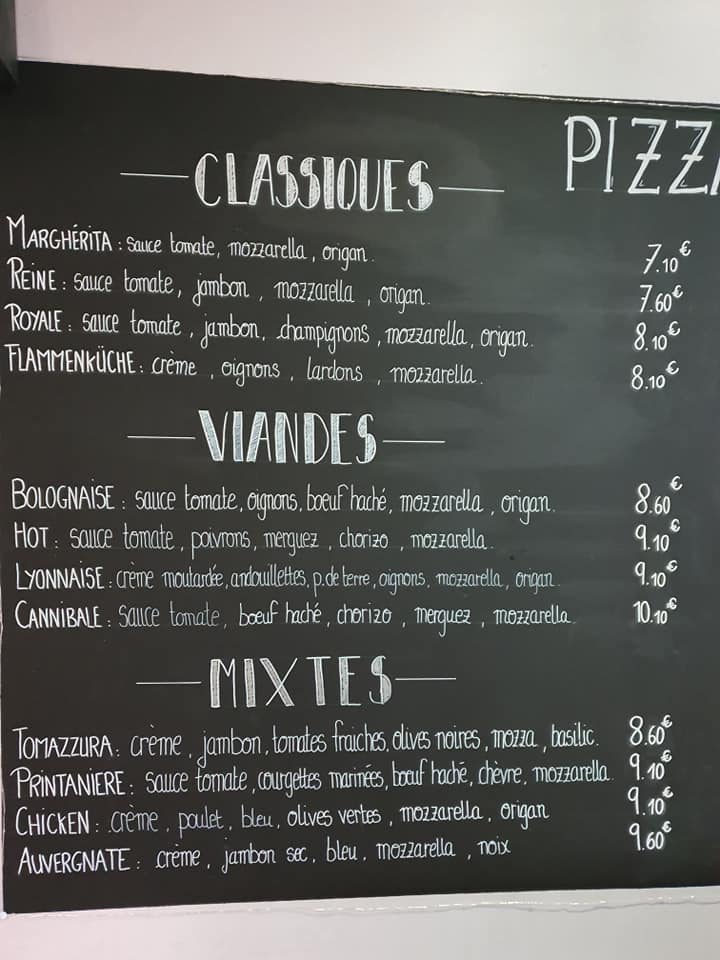 PIZZ
CLASSIQUES
MARGHÉRITA : sauce tomate, mozzarella, origan. 7.10€
REINE : sauce tomate, jambon, mozzarella, origan. 7.60€
ROYALE : sauce tomate, jambon, champignons, mozzarella, origan. 8.10€
FLAMMENKÜCHE : crème, oignons, lardons, mozzarella. 8.10€
VIANDES
BOLOGNAISE : sauce tomate, oignons, boeuf haché, mozzarella, origan. 8.60€
HOT : sauce tomate, poivrons, merguez, chorizo, mozzarella. 9.10€
LYONNAISE : crème moutardée, andouillettes, p.de terre, oignons, mozzarella, origan. 9.10€
CANNIBALE : sauce tomate, boeuf haché, chorizo, merguez, mozzarella. 10.10€
MIXTES
TOMAZZURA : crème, jambon, tomates fraiches, olives noires, mozza, basilic. 8.60€
PRINTANIERE : sauce tomate, courgettes marinées, boeuf haché, chèvre, mozzarella. 9.10€
CHICKEN : crème, poulet, bleu, olives vertes, mozzarella, origan 9.10€
AUVERGNATE : crème, jambon sec, bleu, mozzarella, noix 9.60€